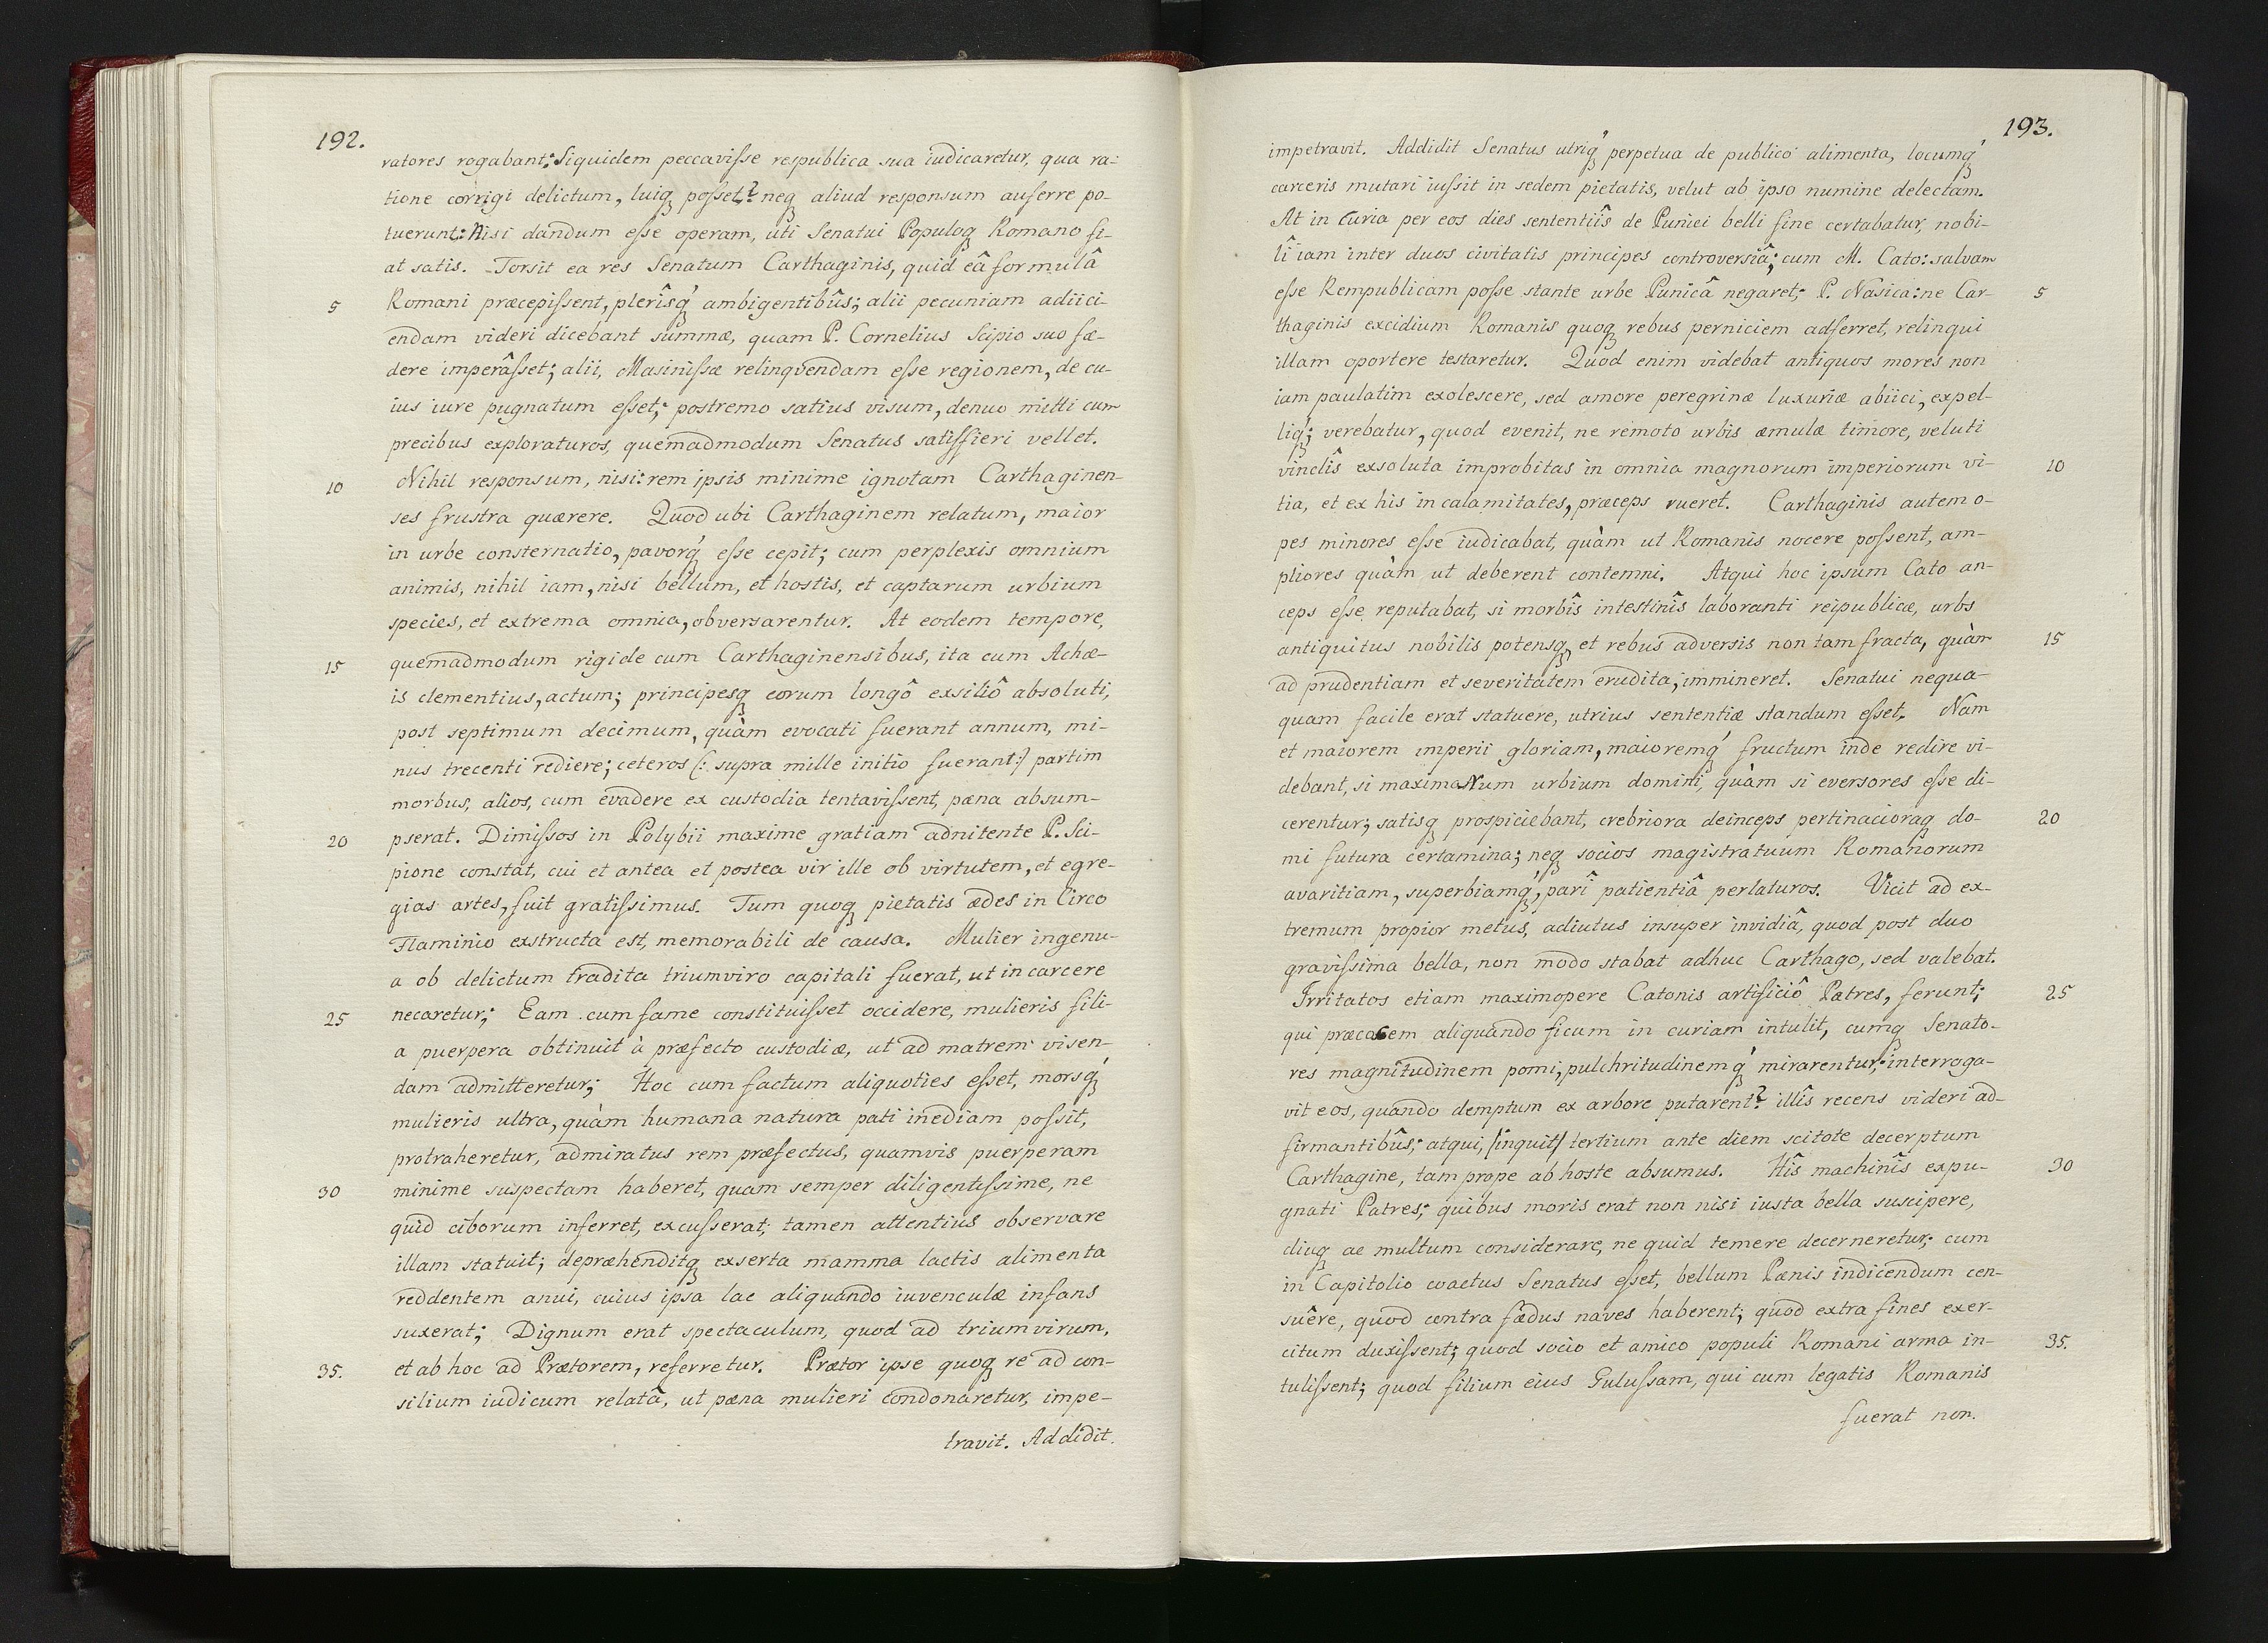 192.
ratores rogabant: Siquidem peccavisse respublica sua iudicaretur, qua ra-
tione corrigi delictum, luiq posset? neq aliud responsum auferre po-
tuerunt: Nisi dandum esse operam, uti Senatui Populoq Romano fi-
at satis. Torsit ea res Senatum Carthaginis, quid eâ formulâ
5 Romani præcepissent, plerîsq́ ambigentibûs; alii pecuniam adiici-
endam videri dicebant summæ, quam P. Cornelius Scipio suo fæ-
dere imperâsset; alii, Masinissæ relinqvendam esse regionem, de cu-
ius iure pugnatum esset; postremo satius visum, denuo mitti cum
precibus exploraturos, quemadmodum Senatus satisfieri vellet.
10 Nihil responsum, nisi: rem ipsis minime ignotam Carthaginen-
ses frustra quærere. Quod ubi Carthaginem relatum, maior
in urbe consternatio, pavorq́ esse cepit; cum perplexis omnium
animis, nihil iam, nisi bellum, et hostis, et captarum urbium
species, et extrema omnia, obversarentur. At eodem tempore,
15 quemadmodum rigide cum Carthaginensibus, ita cum Achæ-
is clementius, actum; principesq eorum longô exsiliô absoluti,
post septimum decimum, quàm evocati fuerant annum, mi-
nus trecenti rediere; ceteros (: supra mille initio fuerant:) partim
morbus, alios, cum evadere ex custodia tentavissent, pæna absum-
20 pserat. Dimissos in Polybii maxime gratiam adnitente P. Sci-
pione constat, cui et antea et postea vir ille ob virtutem, et egre-
gias artes, fuit gratissimus. Tum quoq pietatis ædes in Circo
Flaminio exstructa est, memorabili de causa. Mulier ingenu-
a ob delictum tradita triumviro capitali fuerat, ut in carcere
25 necaretur; Eam cum fame constituisset occidere, mulieris fili-
a puerpera obtinuit à præfecto custodiæ, ut ad matrem visen-
dam admitteretur; Hoc cum factum aliquoties esset, morsq́
mulieris ultra, quàm humana natura pati inediam possit,
protraheretur, admiratus rem præfectus, quamvis puerperam
30 minime suspectam haberet, quam semper diligentissime, ne
quid ciborum inferret, excusserat; tamen attentius observare
illam statuit; depræhenditq exserta mamma lactis alimenta
reddentem anui, cuius ipsa lac aliquando iuvenculæ infans
suxerat; Dignum erat spectaculum, quod ad triumvirum,
35. et ab hoc ad Prætorem, referretur. Prætor ipse quoq re ad con-
silium iudicum relatâ, ut pæna mulieri condonaretur, impe-
travit. Addidit.
193.
impetravit. Addidit Senatus utriq́ perpetua de publico alimenta, locumq́
carceris mutari iussit in sedem pietatis, velut ab ipso numine delectam.
At in Curia per eos dies sententiîs de Punici belli fine certabatur, nobi-
lî iam inter duos civitatis principes controversiâ; cum M. Cato: salvam
5 esse Rempublicam posse stante urbe Punicâ negaret; P. Nasica: ne Car-
thaginis excidium Romanis quoq rebus perniciem adferret, relinqui
illam oportere testaretur. Quod enim videbat antiquos mores non
iam paulatim exolescere, sed amore peregrinæ luxuriæ abiici, expel-
liq; verebatur, quod evenit, ne remoto urbis æmulæ timore, veluti
10 vinclîs exsoluta improbitas in omnia magnorum imperiorum vi-
tia, et ex his in calamitates, præceps rueret. Carthaginis autem o-
pes minores esse iudicabat, quàm ut Romanis nocere possent, am-
pliores quàm ut deberent contemni. Atqui hoc ipsum Cato an-
ceps esse reputabat, si morbîs intestinîs laboranti reipublicæ, urbs
15 antiquitus nobilis potensq, et rebus adversis non tam fracta, quàm
ad prudentiam et severitatem erudita, immineret. Senatui nequa-
quam facile erat statuere, utrius sententiæ standum esset. Nam
et maiorem imperii gloriam, maioremq́ fructum inde redire vi-
debant, si maximarum urbium domini, quàm si eversores esse di-
20 cerentur; satisq prospiciebant, crebriora deinceps pertinacioraq do-
mi futura certamina; neq socios magistratuum Romanorum
avaritiam, superbiamq́, parî patientiâ perlaturos. Vicit ad ex-
tremum propior metus, adiutus insuper invidiâ, quod post duo
gravissima bella, non modo stabat adhuc Carthago, sed valebat.
25 Irritatos etiam maximopere Catonis artificiô Patres, ferunt;
qui præcocem aliquando ficum in curiam intulit, cumq Senato-
res magnitudinem pomi, pulchritudinemq́ mirarentur; interroga-
vit eos, quando demptum ex arbore putarent? illîs recens videri ad-
firmantibûs; atqui, /inquit/ tertium ante diem scitote decerptum
30 Carthagine, tam prope ab hoste absumus. Hîs machinîs expu-
gnati Patres; quibus moris erat non nisi iusta bella suscipere,
diuq ac multum considerare, ne quid temere decerneretur; cum
in Capitolio coactus Senatus esset, bellum Pænis indicendum cen-
suêre, quod contra fædus naves haberent; quod extra fines exer-
35. citum duxissent; quod socio et amico populi Romani arma in-
tulissent; quod filium eius Gulussam, qui cum legatis Romanis
fuerat non.